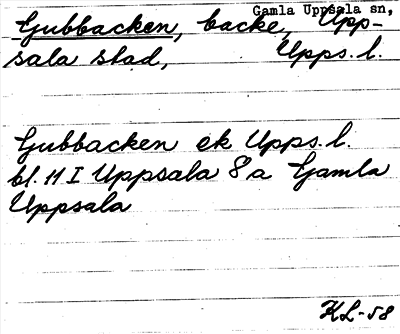 Gamla Uppsala sn,
Gubbacken, backe, Upp-
sala stad, Upps. l.
Gubbacken ek Upps. l.
bl. 11 I Uppsala 8 a Gamla
Uppsala
KL-58